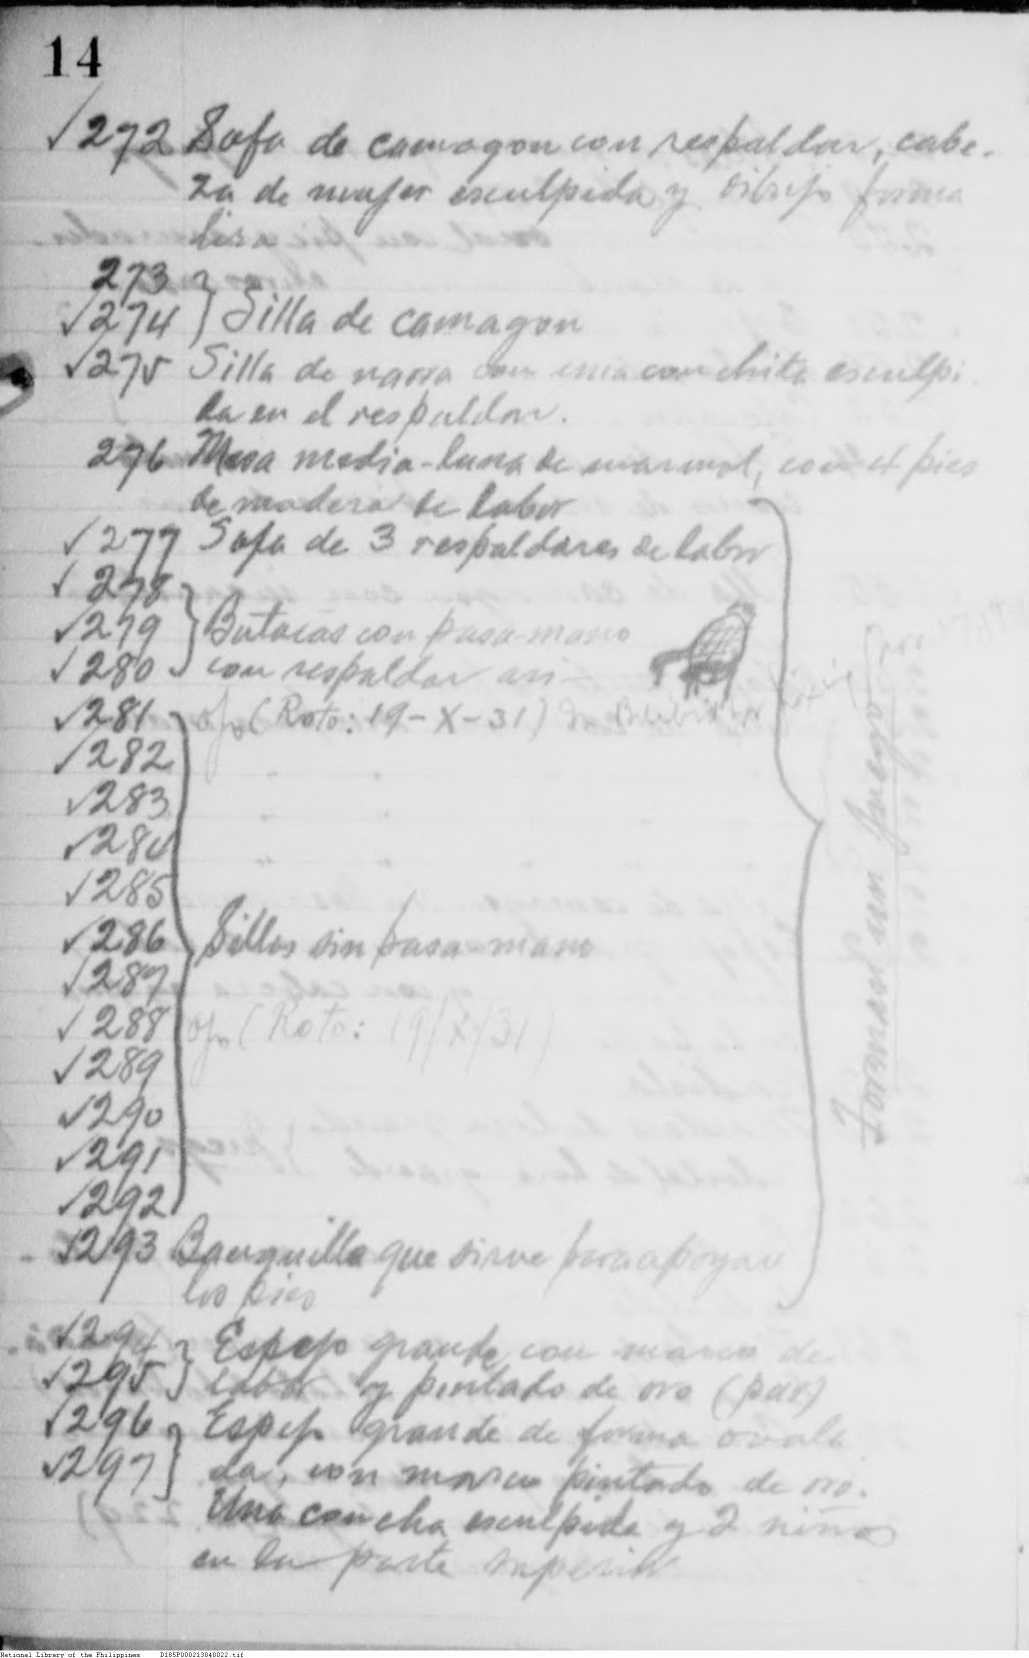 14
√272 Sofa de camagon con respaldar, cabe-
za de mujer esculpida y dibujo forma
lisa
273
√274 } Silla de camagon
√275 Silla de narra con una conchita esculpi-
da en el respaldar.
276 Mesa media-luna de marmol, con 4 pies
de madera de labor
√277 Sofa de 3 respaldares de labor
√278
√279 } Butacas con pasa-mano
√280 con respaldar asi-
√281 (Roto: 19-X-31)
√282
√283
√284
√285
√286 Sillas sin pasa-mano
√287
√288 (Roto: 19/X/31)
√289
√290
√291
√292
√293 Banquilla que sirve para apoyar
los pies
Forman un juego
√294 Espejo grande con marco de
√295 } labor y pintado de oro (par)
√296 Espejo grande de forma ovala
√297 } da, con marco pintado de oro.
Una concha esculpida y 2 niños
en la parte superior
National Library of the Philippines D185P000213840022.tif